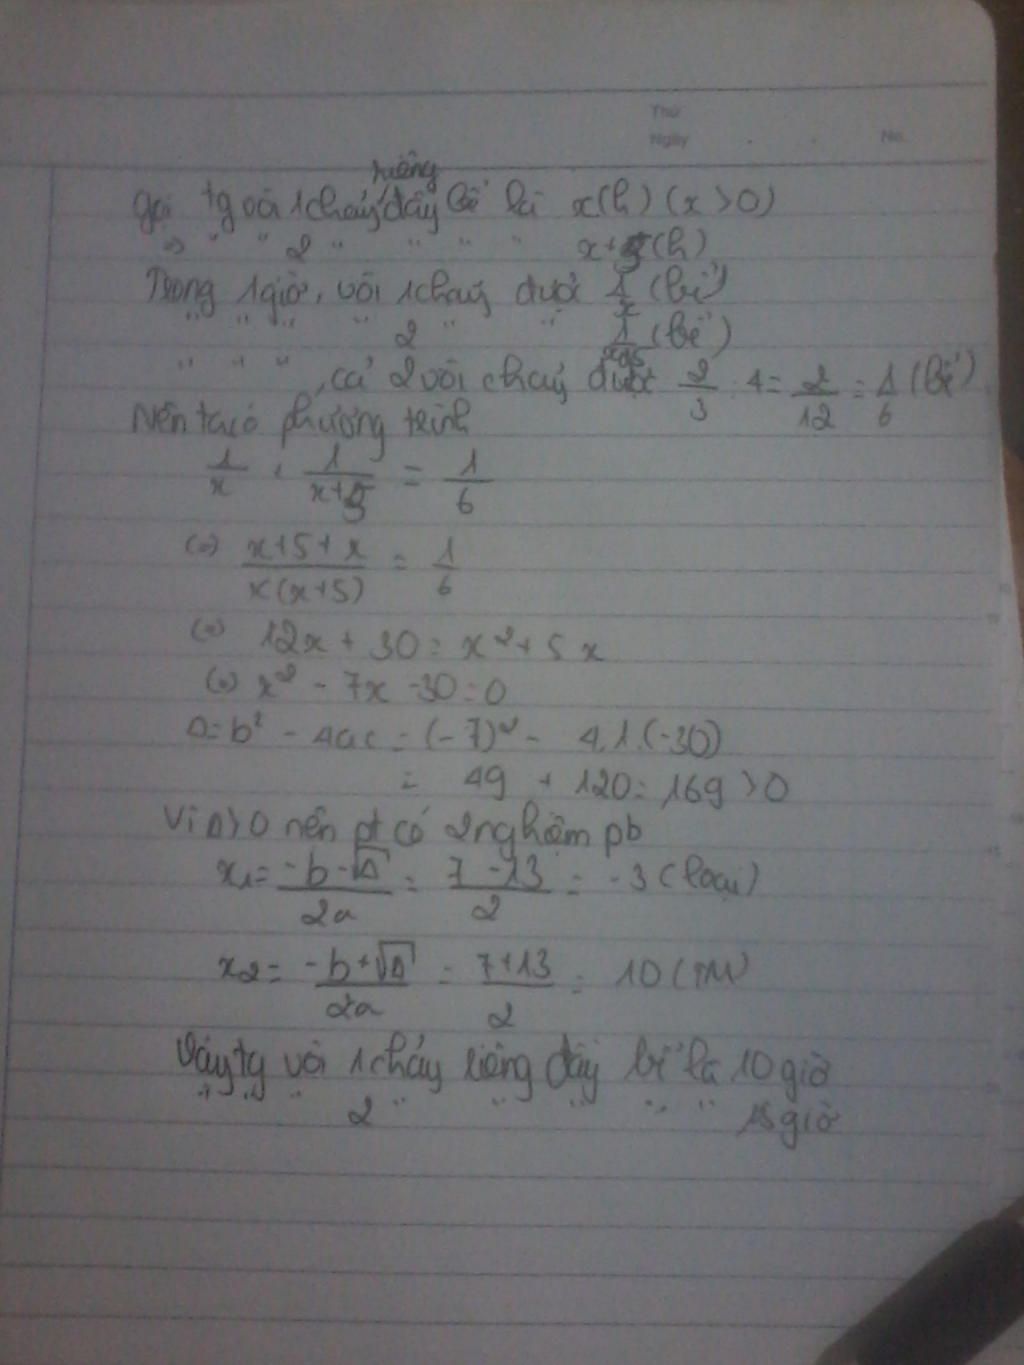 Thứ
Ngày . . No.
riêng
Gọi tg vòi 1 chảy đầy bể là x(h) (x>0)
=> " " 2 " " " " x+5(h)
Trong 1 giờ, vòi 1 chảy được 1/x (bể)
" " " " 2 " " 1/x+5 (bể)
" " " , cả 2 vòi chảy được 2/3 : 4 = 2/12 = 1/6 (bể)
Nên ta có phương trình
1/x + 1/x+5 = 1/6
(=) x+5+x/x(x+5) = 1/6
(=) 12x + 30 = x² + 5x
(=) x² - 7x - 30 = 0
Δ = b² - 4ac = (-7)² - 4.1.(-30)
= 49 + 120 = 169 > 0
Vì Δ>0 nên pt có 2 nghiệm pb
x₁ = -b-√Δ/2a = 7-13/2 = -3 (loại)
x₂ = -b+√Δ/2a = 7+13/2 = 10 (TM)
Vậy tg vòi 1 chảy riêng đầy bể là 10 giờ
" " " 2 " " " " " 15 giờ